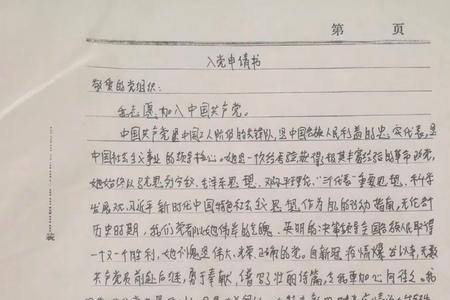 第 页
入党申请书
敬爱的党组织:
我志愿加入中国共产党。
中国共产党是中国工人阶级的先锋队,是中国各族人民利益的忠实代表,是
中国社会主义事业的领导核心。她是一次经考验获得极其丰富经验的革命政党,
她始终以马克思列宁主义、毛泽东思想、邓小平理论、"三个代表"重要思想、科学
发展观、习近平新时代中国特色社会主义思想作为自己的行动指南,无论在
历史时期,我们党都以她伟岸的气魄、英明的决策领导全国各族人民取得
一个又一个胜利,她不愧是伟大、光荣、正确的党。自新冠疫情爆发以来,无数
共产党员前赴后继,勇于奉献,谱写了壮丽诗篇,令我更加心向往之。我